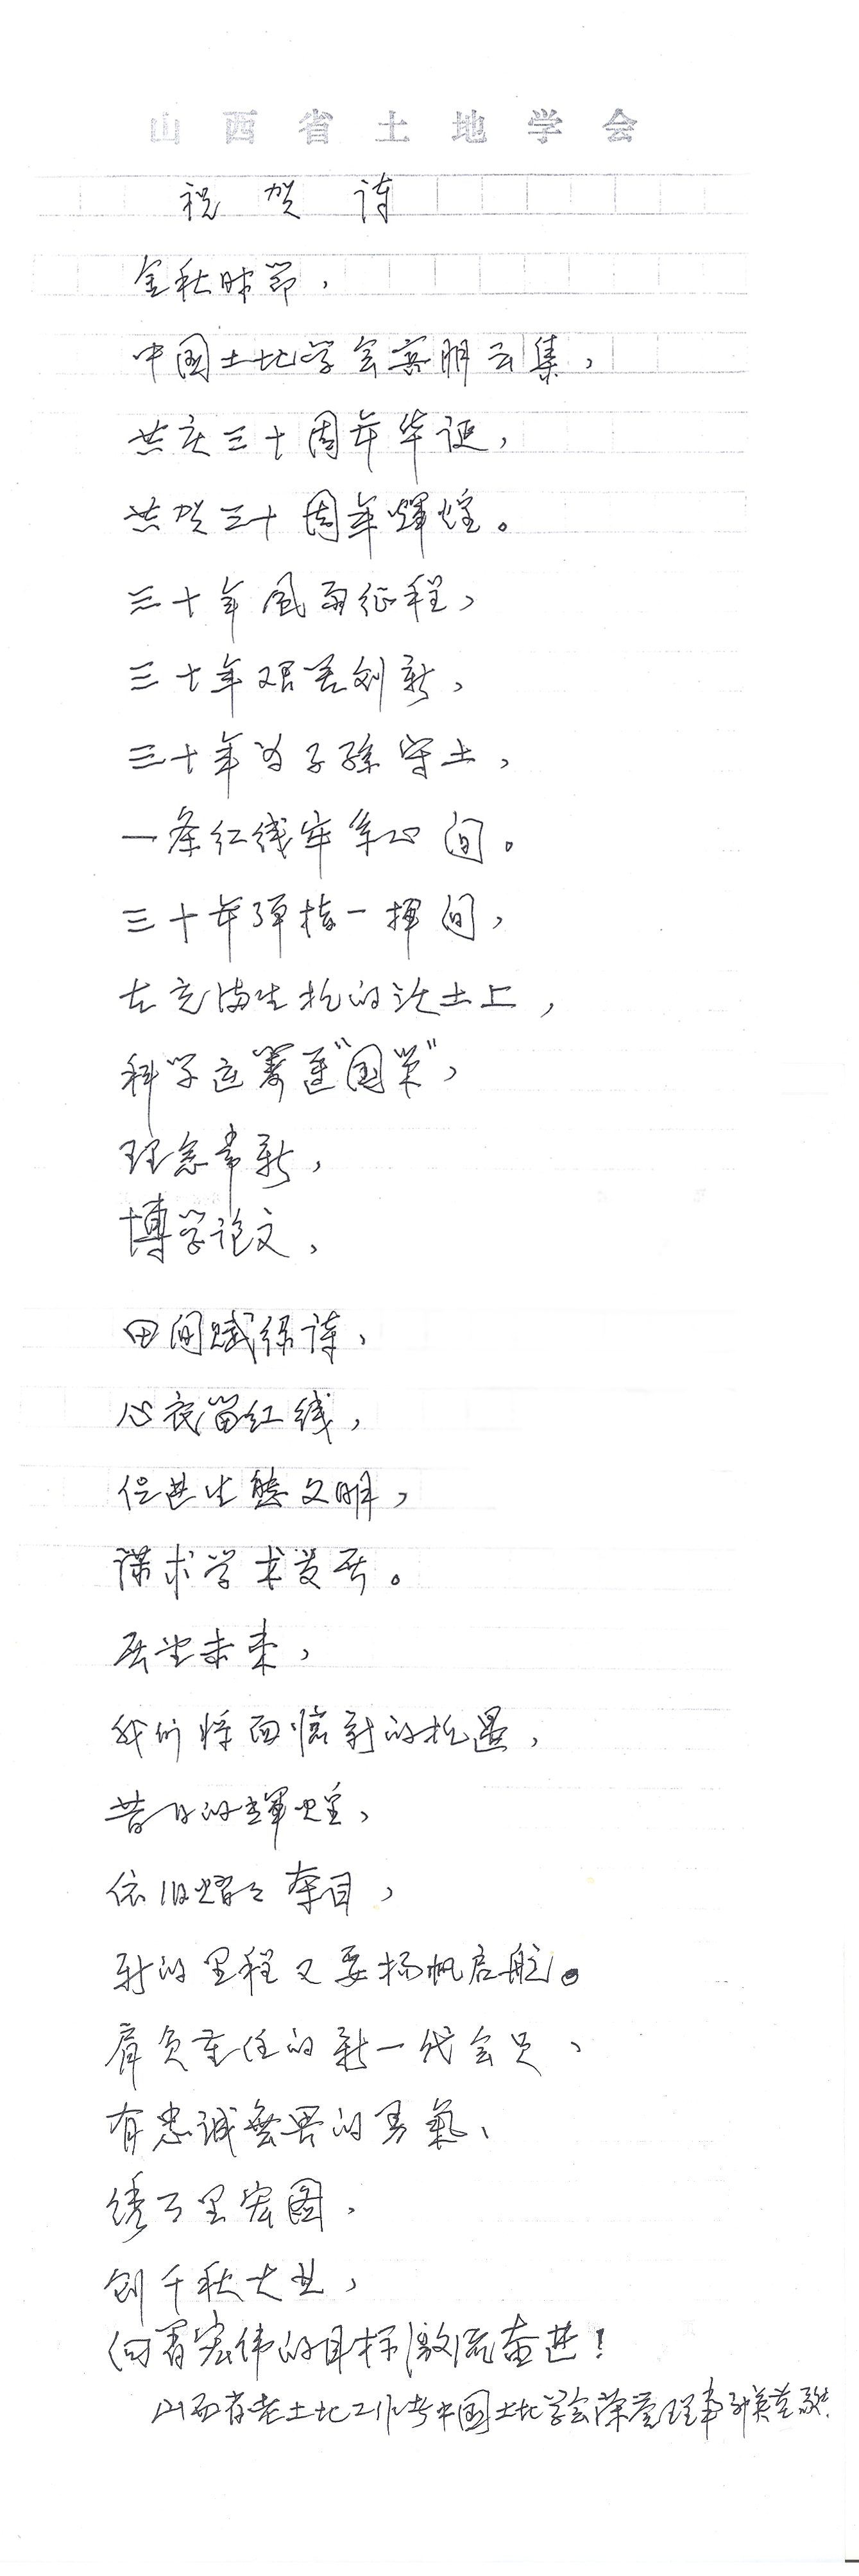 山西省土地学会
祝贺诗
金秋时节，
中国土地学会宾朋云集，
共庆三十周年华诞，
共贺三十周年辉煌。
三十年风雨征程，
三十年艰苦创新，
三十年为子孙守土，
一条红线牢系心间。
三十年弹指一挥间，
在充满生机的沃土上，
科学运筹连“国策”，
理念常新，
博学论文，
田间赋绿诗，
心夜留红线，
促进生態文明，
谋求学术发展。
展望未来，
我们将面临新的机遇，
昔日的辉煌，
依旧熠々夺目，
新的里程又要扬帆启航。
肩负重任的新一代会员、
有忠诚無畏的勇氣、
绣万里宏图，
创千秋大业，
向着宏伟的目标激流奋进！
山西省老土地工作者中国土地学会荣誉理事